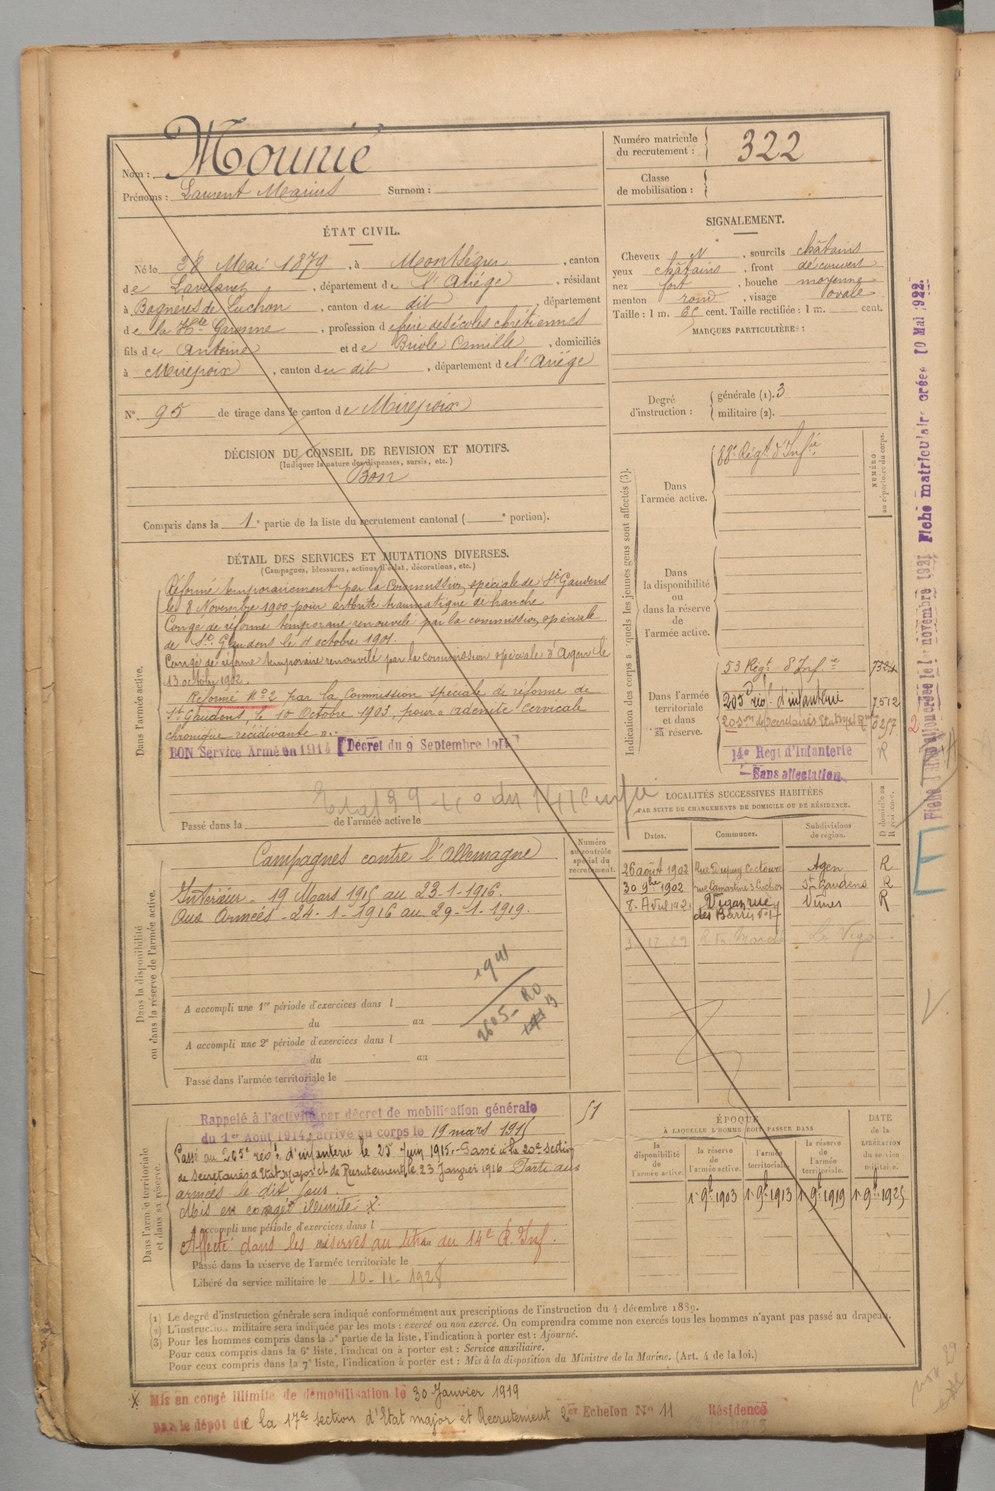 Nom : Mounié
Prénoms : Laurent Marius Surnom :
ÉTAT CIVIL.
Né le 28 Mai 1879, à Montségur, canton
de Lavelanet, département de l'Ariège, résidant
à Bagnères de Luchon, canton du dit, département
de la Hte Garonne, profession de frère des écoles chrétiennes
fils de Antoine et de Briole Camille, domiciliés
à Mirepoix, canton du dit, département de l'Ariège
N° 95 de tirage dans le canton de Mirepoix
DÉCISION DU CONSEIL DE REVISION ET MOTIFS.
(Indiquer la nature des dispenses, sursis, etc.)
Bon
Compris dans la 1e partie de la liste du recrutement cantonal ( e portion).
DÉTAIL DES SERVICES ET MUTATIONS DIVERSES.
(Campagnes, blessures, actions d'éclat, décorations, etc.)
Dans l'armée active.
Réformé temporairement par la Commission spéciale de St Gaudens
le 8 Novembre 1900 pour arthrite traumatique de hanche
Congé de réforme temporaire renouvelé par la commission spéciale
de St Gaudens le 11 octobre 1901.
Congé de réforme temporaire renouvelé par la commission spéciale d'Agen le
13 octobre 1902.
Réformé No 2 par la Commission spéciale de réforme de
St Gaudens, le 10 Octobre 1903, pour « adénite cervicale
chronique récidivante ».
BON Service Armé en 1914 [Décret du 9 Septembre 1914]
Passé dans la de l'armée active le
Dans la disponibilité
ou dans la réserve de l'armée active.
Numéro
au contrôle
spécial du
recrutement.
Campagnes contre l'Allemagne
Intérieur - 19 Mars 1915 au 23-1-1916.
Aux Armées - 24-1-1916 au 29-1-1919.
A accompli une 1re période d'exercices dans l
du au
A accompli une 2e période d'exercices dans l
du au
Passé dans l'armée territoriale le
Dans l'armée territoriale
et dans sa réserve.
51
Rappelé à l'activité par décret de mobilisation générale
du 1er Août 1914, arrivé au corps le 19 mars 1915
Passé au 205e rég. d'infanterie le 25 Juin 1915. Passé à la 20e section
de secrétaires d'Etat Major et de Recrutement, le 23 Janvier 1916. Parti aux
armées le dit jour.
Mis en congé illimité X
A accompli une période d'exercices dans l
Affecté dans les réserves au titre du 14e R. Inf.
Passé dans la réserve de l'armée territoriale le
Libéré du service militaire le 10-11-1928
Numéro matricule
du recrutement : 322
Classe
de mobilisation :
SIGNALEMENT.
Cheveux N, sourcils châtains
yeux châtains, front découvert
nez fort, bouche moyenne
menton rond, visage ovale
Taille : 1 m. cent. Taille rectifiée : 1 m. cent.
MARQUES PARTICULIÈRES :
Degré
d'instruction :
générale (1). 3
militaire (2).
Indication des corps auxquels les jeunes gens sont affectés (3).
NUMÉRO
au répertoire du corps.
Dans
l'armée active.
88e Régt d'Infie
Dans
la disponibilité
ou
dans la réserve
de
l'armée active.
Dans l'armée
territoriale
et dans
sa réserve.
53 Régt d'Infie
205e rég. d'infanterie 7512
14e Regt d'Infanterie R
Sans affectation
LOCALITÉS SUCCESSIVES HABITÉES
PAR SUITE DE CHANGEMENTS DE DOMICILE OU DE RÉSIDENCE.
Dates. Communes. Subdivisions
de région. D domicile ou
R résidence.
26 août 1902 Agen R
30 9bre 1902 rue Lamartine 3 Luchon St Gaudens R
8 Avril 1921 Vigan rue
des Barris Nîmes R
Le Vigan
ÉPOQUE
A LAQUELLE L'HOMME DOIT PASSER DANS
DATE
de la
LIBÉRATION
du service
militaire.
la
disponibilité
de
l'armée active.
la réserve
de
l'armée active.
l'armée
territoriale.
la réserve
de
l'armée
territoriale.
1er 9b 1903 1er 9b 1913 1er 9b 1919 1er 9b 1925
(1) Le degré d'instruction générale sera indiqué conformément aux prescriptions de l'instruction du 4 décembre 1889.
(2) L'instruction militaire sera indiquée par les mots : exercé ou non exercé. On comprendra comme non exercés tous les hommes n'ayant pas passé au drapeau.
(3) Pour les hommes compris dans la 5e partie de la liste, l'indication à porter est : Ajourné.
Pour ceux compris dans la 6e liste, l'indication à porter est : Service auxiliaire.
Pour ceux compris dans la 7e liste, l'indication à porter est : Mis à la disposition du Ministre de la Marine. (Art. 4 de la loi.)
X Mis en congé illimité de démobilisation le 30 Janvier 1919
par le dépôt de la 17e section d'Etat major et Recrutement 2e Echelon No 11 Résidence
Fiche matriculaire créée 10 Mai 1922.